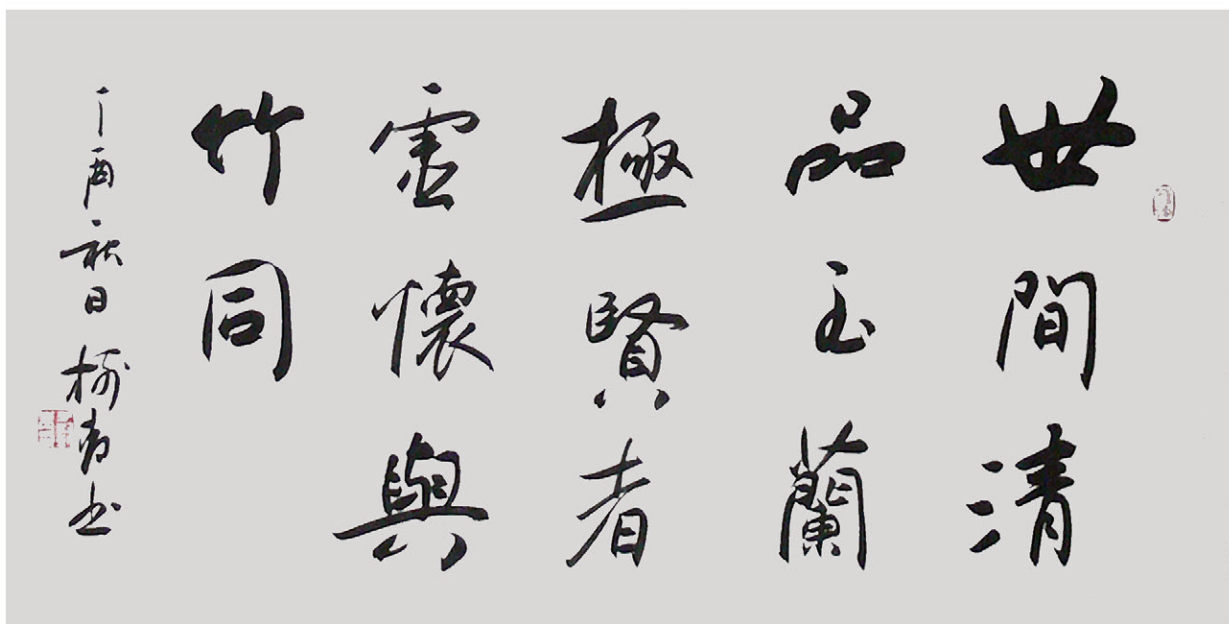 世間清
品至蘭
極賢者
虛懷與
竹同
丁酉秋日柳青书